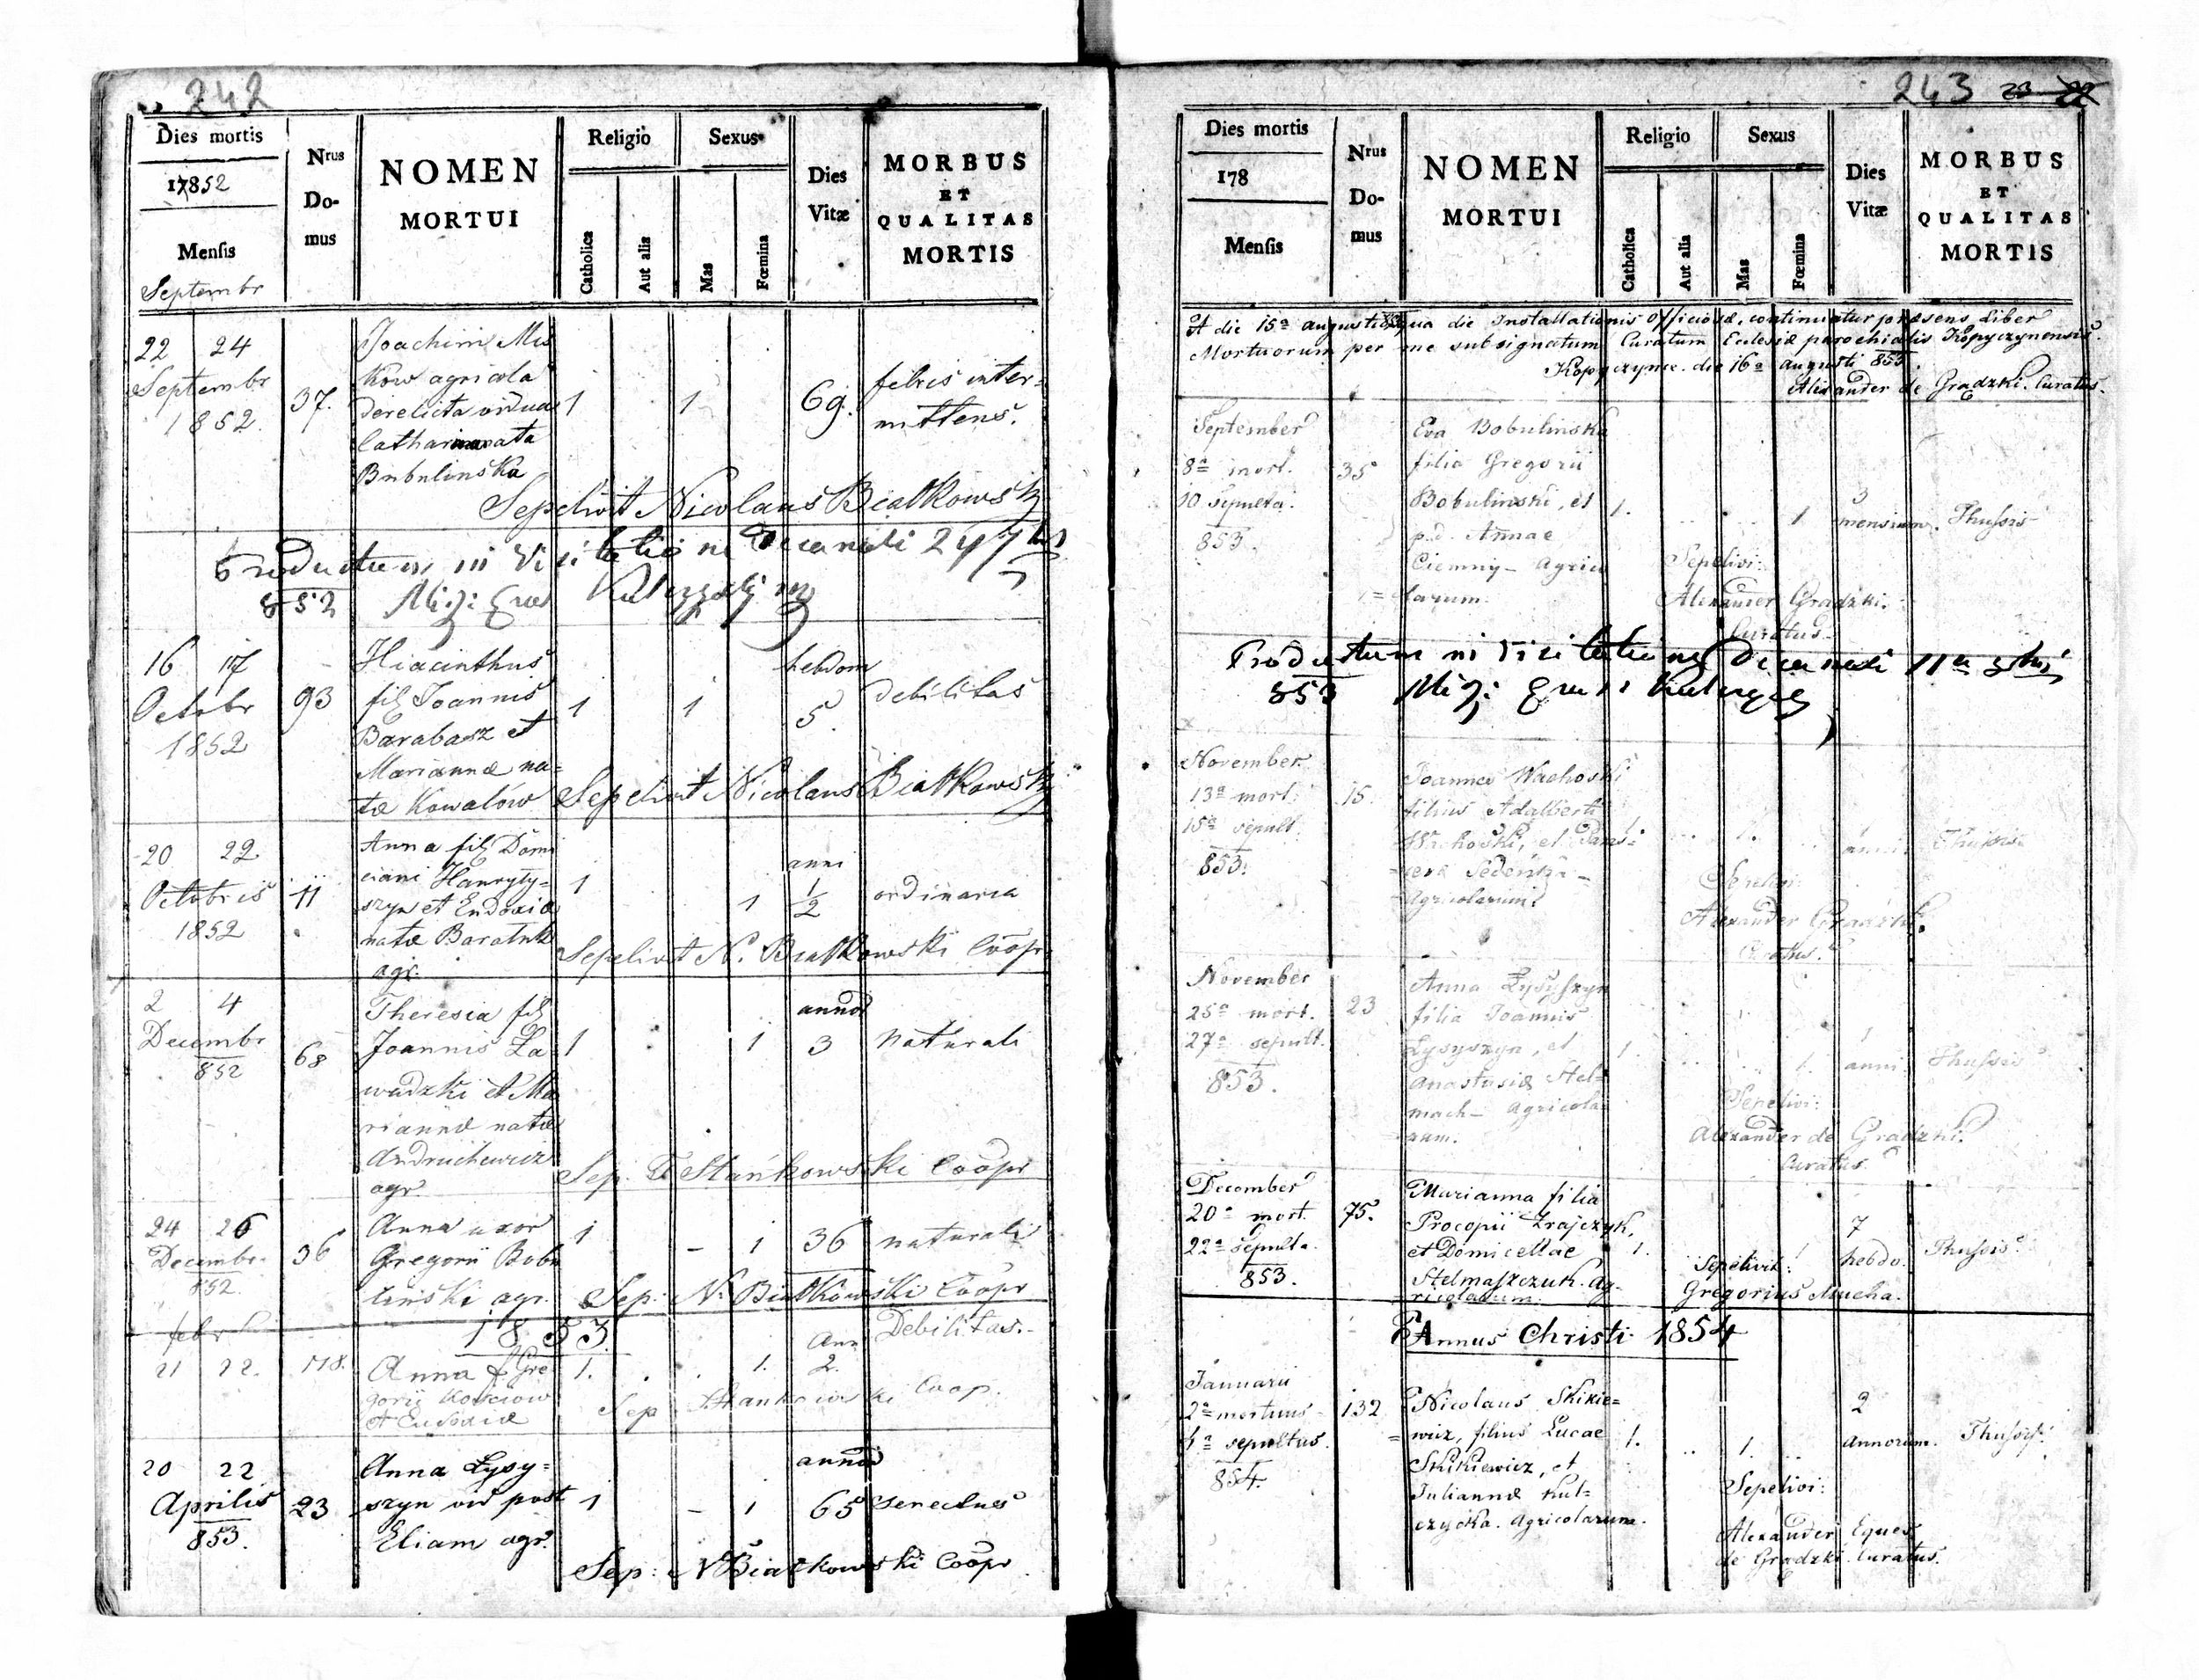 242
Dies mortis
17852
Mensis
Septembr
Nrus
Do-
mus
NOMEN
MORTUI
Religio
Catholica
Aut alia
Sexus
Mas
Fœmina
Dies
Vitæ
MORBUS
ET
QUALITAS
MORTIS
22 24
Septembr
1852.
37.
Joachim Mis
kow agricola
derelicta vidua
Catharina nata
Bubulinska
1
1
69.
febris inter-
mittens.
Sepelivit Nicolaus Białkowski
Productum in Visitatione Decanali 24
852
16 17
Octobr
1852
93
Hiacinthus
fil Joannis
Barabasz et
Mariannæ na=
tæ Kowalów
1
1
hebdom
5
debilitas
Sepelivit Nicolaus Białkowski
20 22
Octobris
1852
11
Anna fil Domi
ciani
szyn et Eudoxiæ
natæ
agr.
1
1
anni
1/2
ordinaria
Sepelivit N. Białkowski Coopr
2 4
Decembr
852
68
Theresia fil
Joannis La
wadzki et Ma
riannæ natæ
Andruchewicz
agr.
1
1
annos
3
naturali
Sep. T Stańkowski Coopr
24 26
Decembr.
852.
36
Anna uxor
Gregorii Bobu
linski agr.
1
- 1
36
naturali
Sep: N. Białkowski Coopr
febr
1853
21 22.
118.
Anna f Gre
gorii Kosciow
et Eudoxiæ
1.
1.
Ann
2.
Debilitas.-
Sep Coop.
20 22
Aprilis
853.
23
Anna Łysy=
szyn vid post
Eliam agr.
1
- 1
annos
65
senectus
Sep: N Białkowski Coopr
243 23 22
Dies mortis
178
Mensis
Nrus
Do-
mus
NOMEN
MORTUI
Religio
Catholica
Aut alia
Sexus
Mas
Fœmina
Dies
Vitæ
MORBUS
ET
QUALITAS
MORTIS
A die 15a augusti 853 qua die Installationis Officiosæ, continuatur præsens Liber
Mortuorum per me subsignatum Curatum Ecclesiæ parochialis Kopyczynensis.
Kopyczynce. die 16a augusti 853.
Alexander de Gradzki. Curatus.
September
8a mort.
10 sepulta.
853.
35
Eva Bobulinska
filia Gregorii
Bobulinski, et
p.d. Annae
Ciemny - Agrico
= larum.
1.
1
3
mensium.
Thussis
Sepelivi:
Alexander Gradzki.
Curatus.
Productum in Visitatione Decanali 11a
853
November
13a mort.
15a sepult.
853.
15.
Joannes Wachoski
filius Adalberti
Wachoski, et Paras=
Agricolarum.
1.
1.
anni
Thussis
Sepelivi:
Alexander Gradzki.
Curatus.
November
25a mort.
27a sepult.
853.
23
Anna Łysyszyn
filia Joannis
Łysyszyn, et
Anastasiæ Stel=
mach - Agricola=
rum.
1.
1.
1
anni
Thussis
Sepelivi:
Alexander de Gradzki.
Curatus
December
20a mort.
22a sepulta.
853.
75.
Marianna filia
Procopii Zrajczyk,
et Domicellae
Stelmaszczuk. Ag-
ricolarum.
1.
1
7
hebdo.
Thussis.
Sepelivit:
Gregorius Mucha.
Annus Christi 1854
Januarii
2a mortuus
4a sepultus.
854.
132
Nicolaus Skikie=
wicz, filius Lucae
Skikiewicz, et
Juliannæ Kul=
czycka. Agricolarum.
1.
1.
2
Annorum.
Thussis.
Sepelivi:
Alexander Eques
de Gradzki. Curatus.